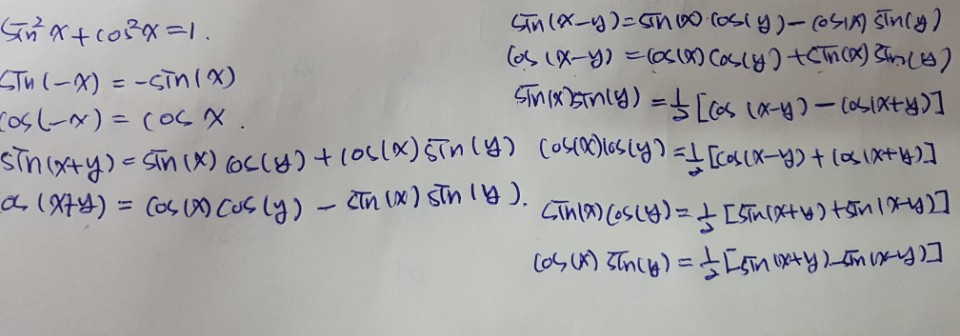 sin²x + cos²x = 1.
sin(-x) = -sin(x)
cos(-x) = cos x.
sin(x+y) = sin(x) cos(y) + cos(x) sin(y)
cos(x+y) = cos(x) cos(y) - sin(x) sin(y).
sin(x-y) = sin(x) cos(y) - cos(x) sin(y)
cos(x-y) = cos(x) cos(y) + sin(x) sin(y)
sin(x) sin(y) = 1/2 [cos(x-y) - cos(x+y)]
cos(x) cos(y) = 1/2 [cos(x-y) + cos(x+y)]
sin(x) cos(y) = 1/2 [sin(x+y) + sin(x-y)]
cos(x) sin(y) = 1/2 [sin(x+y) - sin(x-y)]